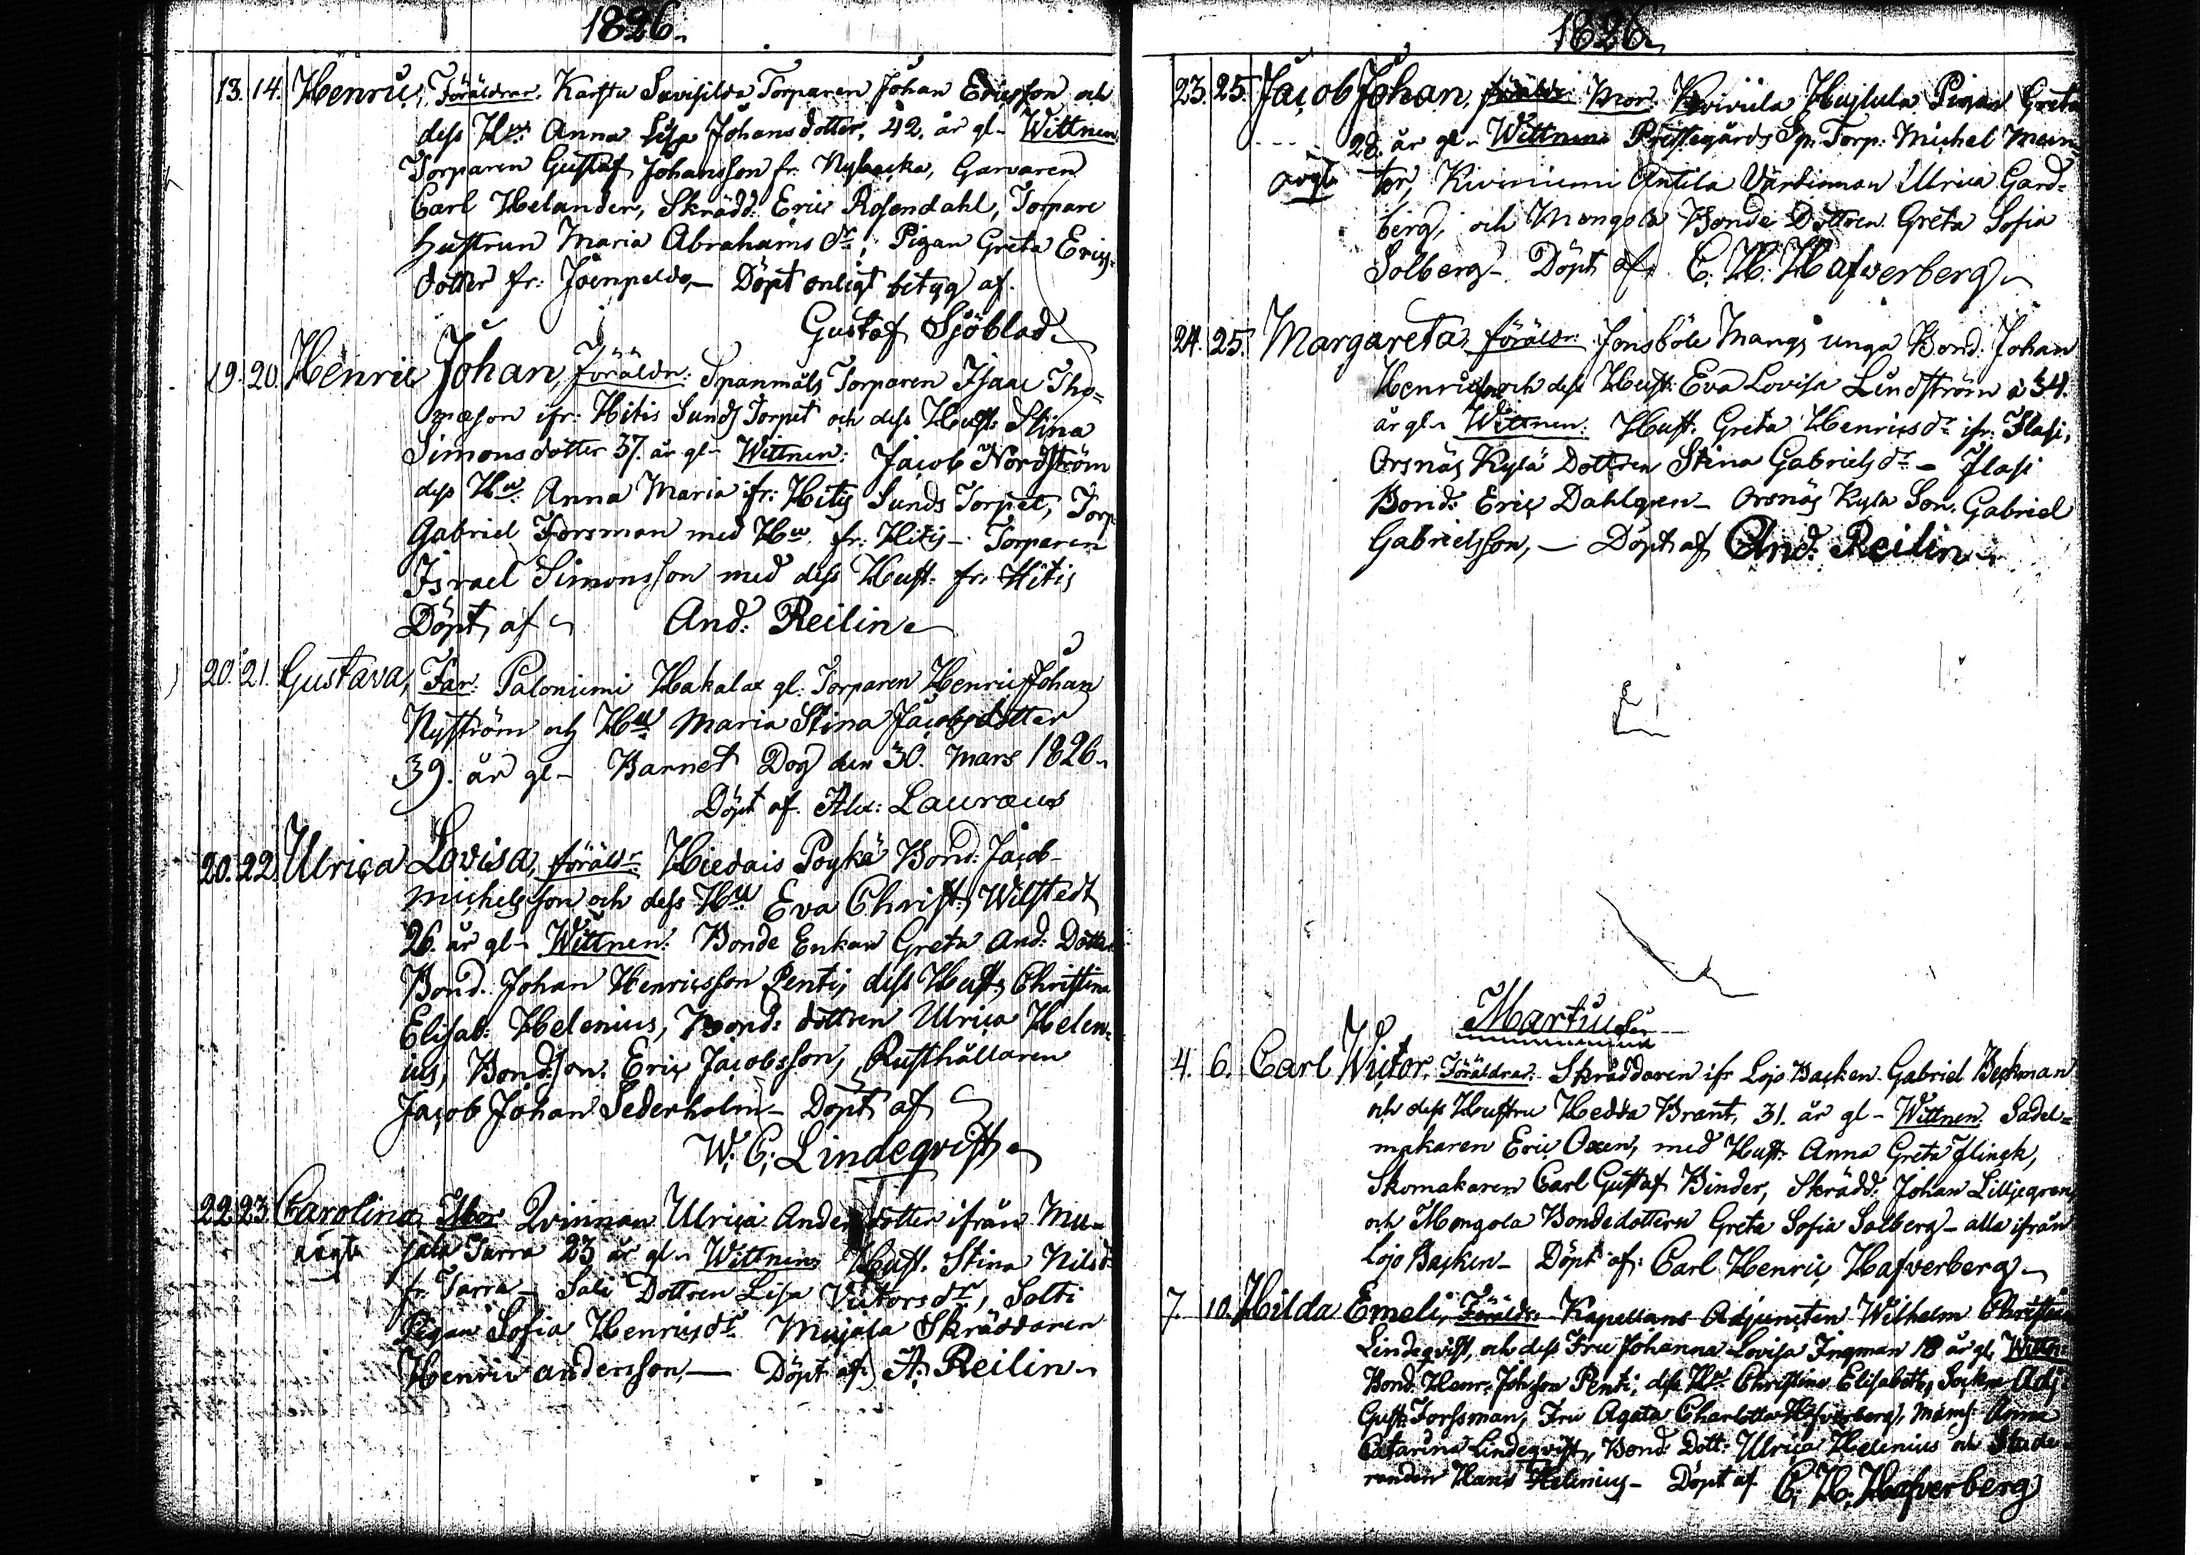 1826.
13. 14. Henric, Föräldrar. Karstu Savisilda Torparen Johan Ericsson och
dess Hu: Anna Lisa Johansdotter, 42. år gl- Wittnen
Torparen Gustaf Johansson fr. Nybacka, Garvaren
Carl Helander, Skrädd: Eric Rosendahl, Torpare
Hustrun Maria Abrahams dr, Pigan Greta Erics
dotter fr: Joenpeldo,- Döpt enligt betyg af.
Gustaf Sjöblad
19. 20. Henric Johan, Föräldr: Spanmåls Torparen Isaac Tho=
masson ifr: Hitis Sunds Torpet och dess Hust. Stina
Simonsdotter 37. år gl- Wittnen: Jacob Nordström
dess Hu. Anna Maria ifr: Hitis Sunds Torpet, Torp
Gabriel Forsman med Hu. fr: Hitis- Torparen
Israel Simonsson med dess Hust. fr. Hitis
Döpt, af And: Reilin
20. 21. Gustava, Far: Paloniemi Hakala gl. Torparen Henric Johan
Nyström och Hu: Maria Stina Jacobsdotter
39. år gl- Barnet Dog den 30. Mars 1826.
Döpt af. Alex: Lauræus
20. 22. Ulrica Lovisa, föräldr: Hiedais Poykä Bond: Jacob
Michelsson och dess Hu Eva Christ. Wilstedt
26. år gl- Wittnen: Bonde Enkan Greta And: Dotter
Bond. Johan Henricsson Penti, dess Hust. Christina
Elisab: Helenius, Bond: dottren Ulrica Helen-
ius, Bondson: Eric Jacobsson, Rusthållaren
Jacob Johan Sederholm- Döpt af
W. C. Lindeqvist
22. 23. Carolina, Mor Qvinnan Ulrica Andersdotter ifrån Mu-
oägta jala Tarra 23 år gl- Wittnen Hust. Stina Nilsd:
fr. Tarra- Sali Dottren Lisa Victorsdr, Solti
Pigan Sofia Henricsdr Mujala Skräddaren
Henric andersson,- Döpt af: A: Reilin
1826.
23. 25. Jacob Johan, föräldr Mor: Hujlula Pigan Greta
28. år gl- Wittnen Prestegårds Sp. Torp: Michel Mein-
oägta tor, Kiviniemi Antila Värdinnan Ulrica Gard=
berg, och Mongola Bonde Dottren Greta Sofia
Solberg- Döpt af C. H. Hafverberg
24. 25. Margareta, föräldr: Jonsböle Mangs unga Bond: Johan
Henricsson och dess Hust: Eva Lovisa Lindström à 34.
år gl- Wittnen: Hust. Greta Henricsdr ifr. Ilasi,
Orsnäs Kylä Dottren Stina Gabrielsdr - Ilasi
Bond: Eric Dahlgren- Orsnäs Kyla Son. Gabriel
Gabrielsson,- Döpt af And: Reilin
Martius
4. 6. Carl Victor, Föräldrar. Skräddaren ifr Lojo Backen Gabriel Beckman
och dess Hustru Hedda Brant, 31. år gl- Wittnen. Sadel=
makaren Eric Oxen, med Hust. Anna Greta Flinck,
Skomakaren Carl Gustaf Binder, Skrädd: Johan Lilljegren
och Mongola Bondedottern Greta Sofia Solberg- alla ifrån
Lojo Backen- Döpt af: Carl Henric Hafverberg
7. 10. Hilda Emeli, Föräldr: Kapellans Adjuncten Wilhelm Christian
Lindeqvist, och dess Fru Johanna Lovisa Ingman 18 år gl, Wittn:
Bond. Henr: Johsson Penti, dess Hu Christina Elisabeth, Sockne Adj.
Gust: Forssman, Fru Agata Charlotta Hafverberg, Mams: Anna
Catarina Lindeqvist, Bond: Dott: Ulrica Helenius och Stude-
randen Hans Helenius- Döpt af C. H. Hafverberg